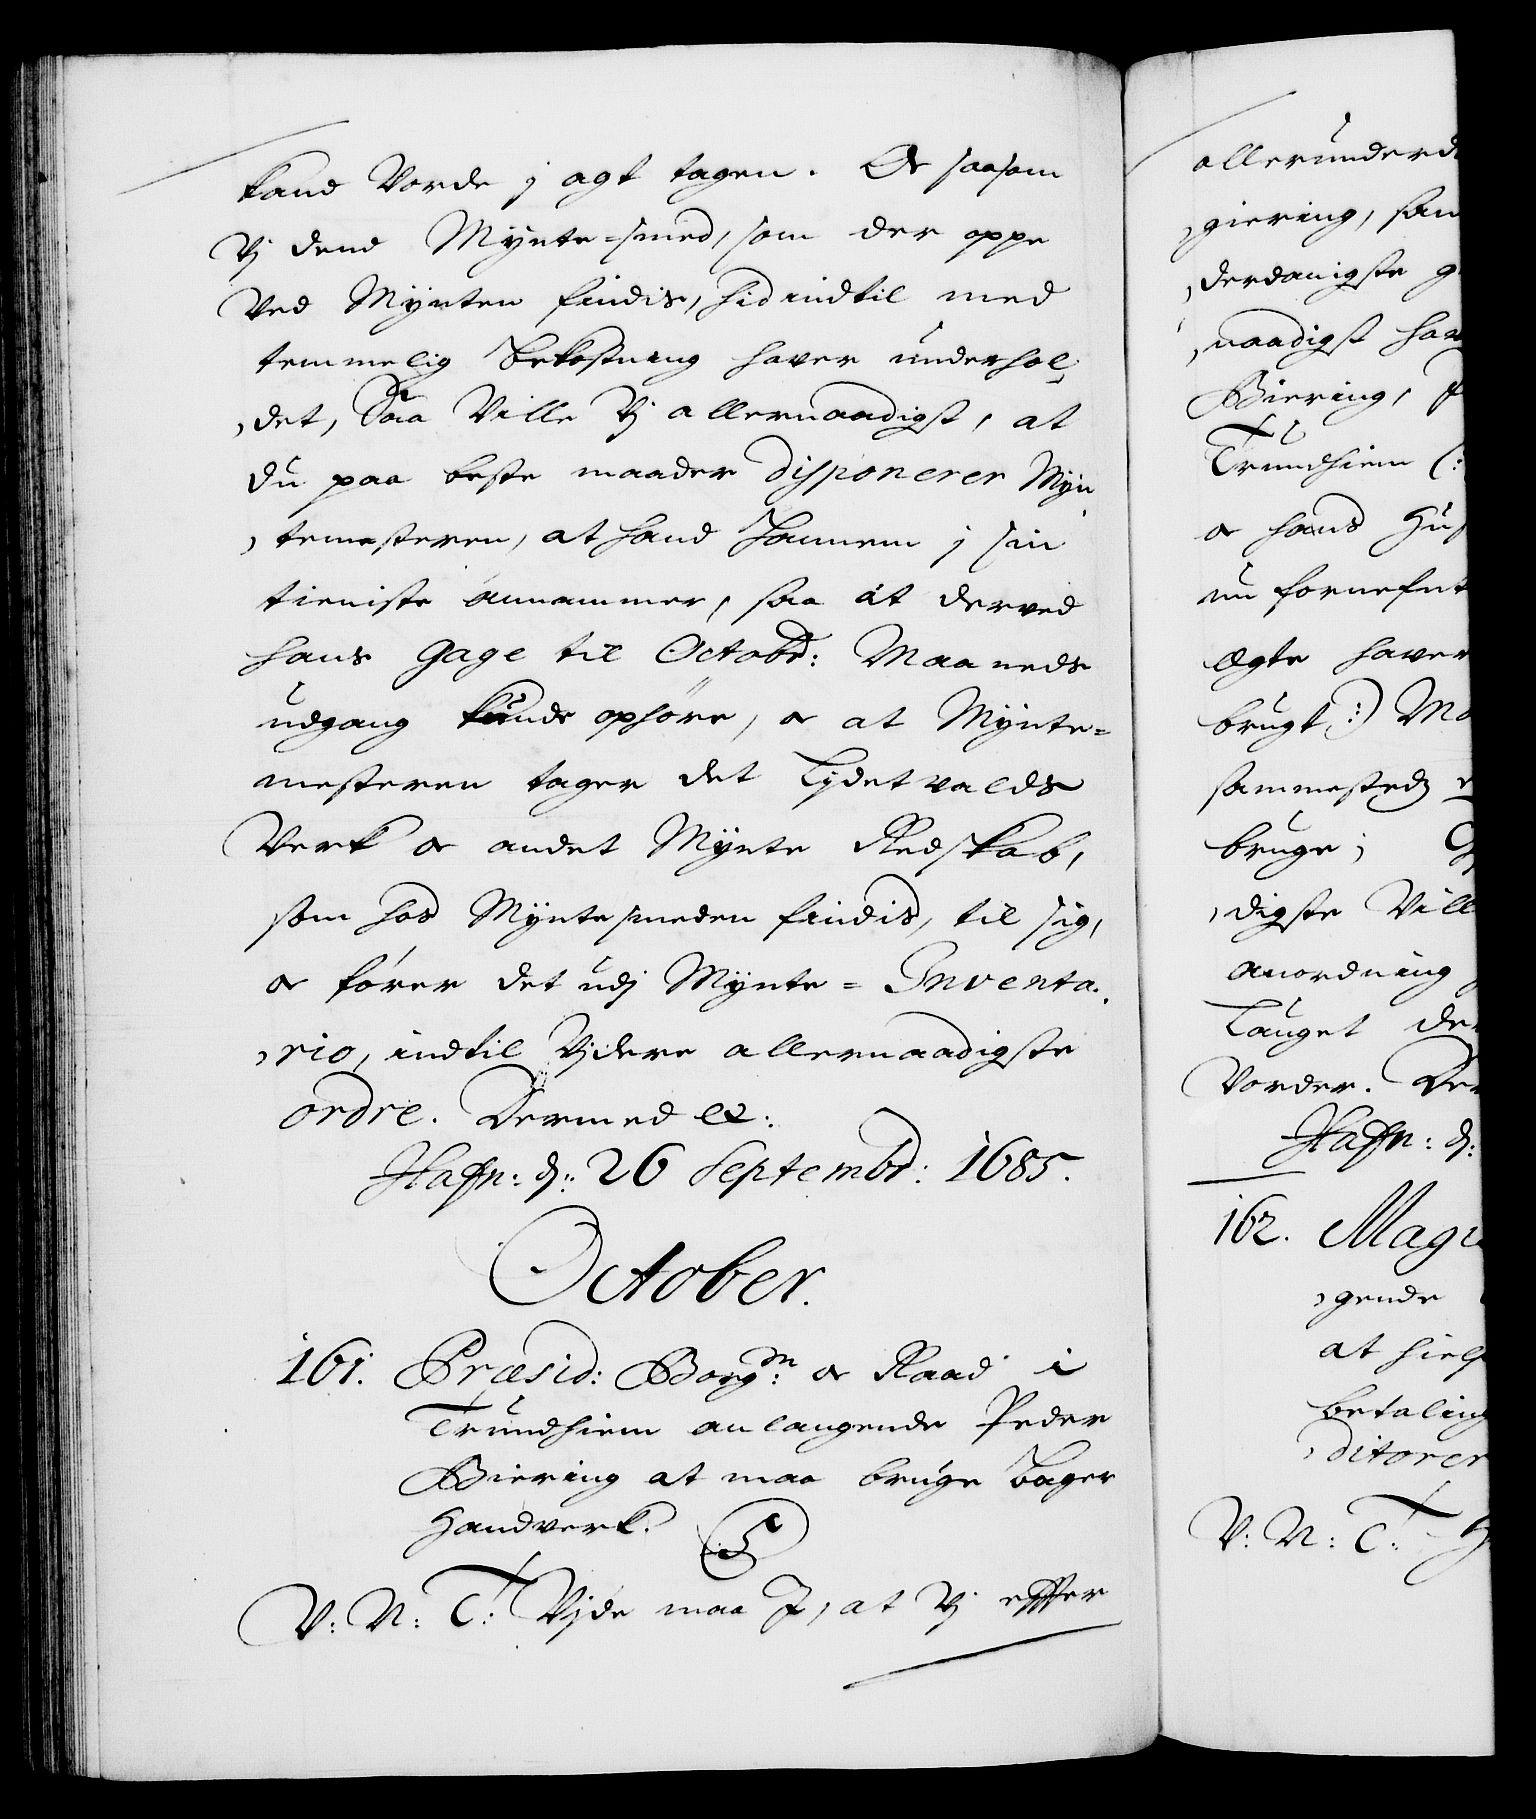 kand Vorde j agt tagen. Oc saasom
Vj dend Mynte-smed, som der oppe
Ved Mynten findis, hid indtil med
temmelig bekostning haver underhol-
det, Saa Ville Vj allernaadigst, at
du paa beste maader disponerer Myn-
temesteren, at hand hannem j sin
tieniste annammer, saa at derved
hans Gage til Octobr: Maaneds
udgang kunde ophøre, oc at Mynte-
mesteren tager det
Verk oc andet Mynte Redskab,
som hos Myntesmeden findis, til sig,
oc fører det udj Mynte-Inventa-
rio, indtil Vjdere allernaadigste
ordre. Dermed etc:
Hafn: d: 26 Septembr: 1685.
October.
161. Præsid: Borgm: oc Raad i
Trundhiem anlangende Peder
Biering at maa bruge bager
Handverk.
V: N: T: Vjde maa J, at Vj efter
allerunderd
giering, sam
derdanigste g
naadigst hav
Biering,
Trundhiem (:
oc hans Hus
nu fornefnt
ægte haver
brugt :) Ma
sammesteds
bruge;
digste Vill
anordning
Lauget der
Vorder. Der
Hafn: d:
162. Magi
gende
at hielp
betaling
ditorer
V: N: T: